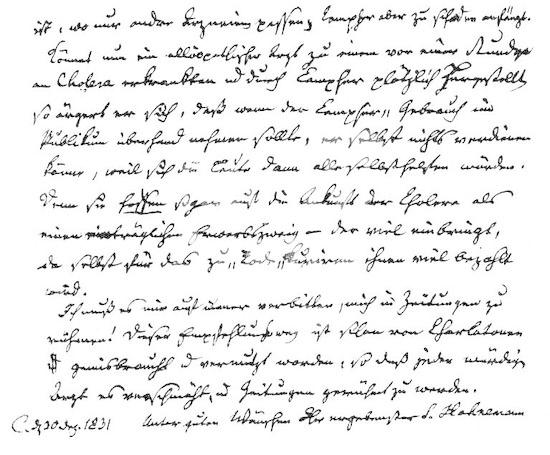 ist, wo nur andre Arzneien passen, Campher aber zu schaden anfängt.
Kömmt nun ein allöopathischer Arzt zu einem vor einer Stunde
an Cholera erkrankten u durch Campher plötzlich Hergestellten
so ärgert er sich, daß wenn der Campher, Gebrauch im
Publikum überhand nehmen sollte, er selbst nichts verdienen
könne, weil sich die Leute dann alle selbst helfen würden.
Denn sie hoffen sogar auf die Ankunft der Cholera als
einen einträglichen Erwerbszweig – der viel einbringt,
da selbst für das zu „Tode„ kuriren ihnen viel bezahlt
wird.
Ich muß es mir auf immer verbitten, mich in Zeitungen zu
rühmen! Dieser Empfehlungsweg ist schon von Charlatanen
gemisbraucht u vernutzt worden, so daß jeder würdige
Arzt es verschmäht, in Zeitungen gerühmt zu werden.
C. d 30 Dez. 1831 Unter guten Wünschen Ihr ergebenster S. Hahnemann